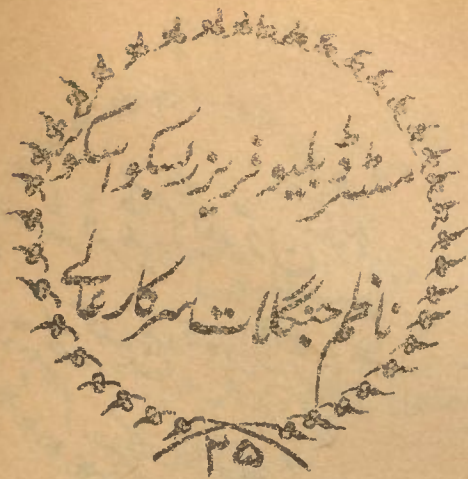 مسٹر ڈبلیو فریزر اسکوائر
ناظم جنگلات سرکار عالی
۲۵